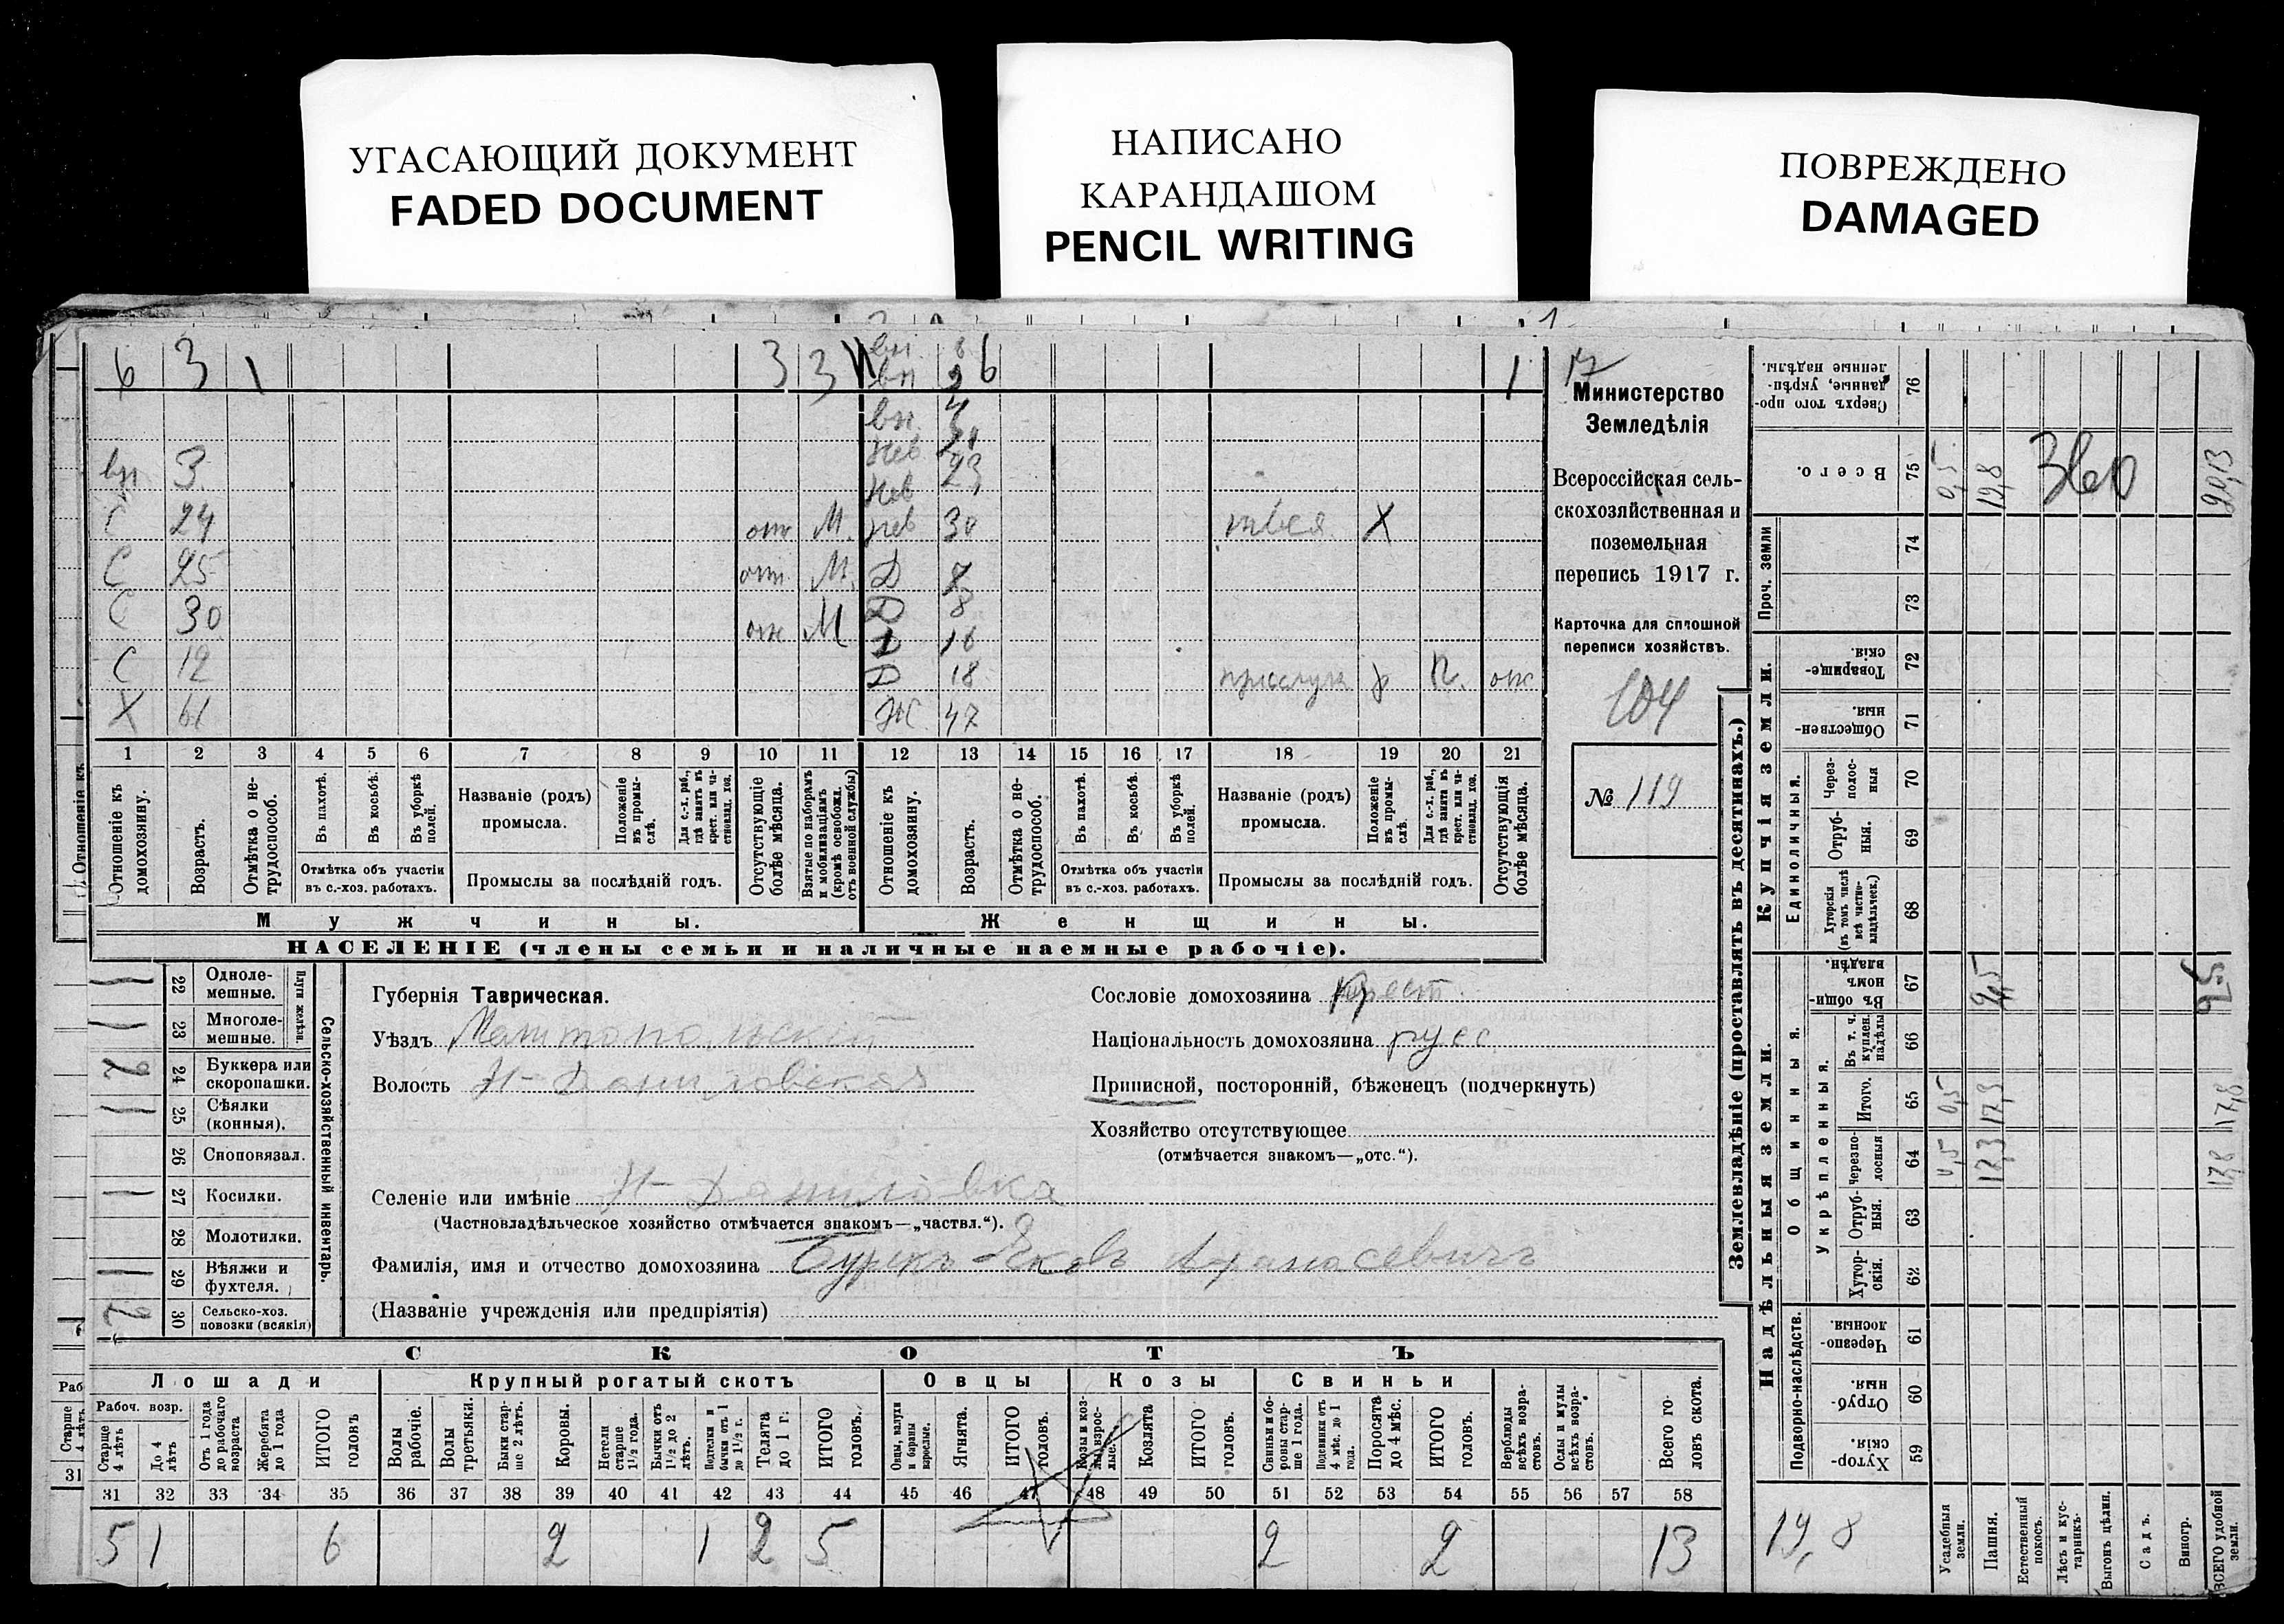 УГАСАЮЩИЙ ДОКУМЕНТ
FADED DOCUMENT
НАПИСАНО
КАРАНДАШОМ
PENCIL WRITING
ПОВРЕЖДЕНО
DAMAGED
6 3 1 3 3 6 1
вн 3
С 24 отс М. нев 30 швея X
С 25 отс М. Д 7
С 30 отс М Д 8
Д 16
С 12 Д 18 прислуга р П. отс
X 61 Ж 47
1 2 3 4 5 6 7 8 9 10 11 12 13 14 15 16 17 18 19 20 21
Отношеніе къ домохозяину.
Возрастъ.
Отмѣтка о нетрудоспособ.
Въ пахотѣ.
Въ косьбѣ.
Въ уборкѣ полей.
Отмѣтка объ участіи въ с.-хоз. работахъ.
Названіе (родъ) промысла.
Положеніе въ промыслѣ.
Для с.-х. раб., гдѣ занятъ въ крест. или частновлад. хоз.
Промыслы за послѣдній годъ.
Отсутствующіе болѣе мѣсяца.
Взятые по наборамъ и мобилизаціямъ (кромѣ освобожд. отъ военной службы)
Отношеніе къ домохозяину.
Возрастъ.
Отмѣтка о нетрудоспособ.
Въ пахотѣ.
Въ косьбѣ.
Въ уборкѣ полей.
Отмѣтка объ участіи въ с.-хоз. работахъ.
Названіе (родъ) промысла.
Положеніе въ промыслѣ.
Для с.-х. раб., гдѣ занята въ крест. или частновлад. хоз.
Промыслы за послѣдній годъ.
Отсутствующія болѣе мѣсяца.
Мужчины. Женщины.
НАСЕЛЕНІЕ (члены семьи и наличные наемные рабочіе).
17
Министерство
Земледѣлія
Всероссійская сель-
скохозяйственная и
поземельная
перепись 1917 г.
Карточка для сплошной
переписи хозяйствъ.
104
№ 119
22 Однолемешные. 1
23 Многолемешные. 1
Плуги желѣзн.
24 Буккера или скоропашки. 2
25 Сѣялки (конныя). 1
26 Сноповязал.
27 Косилки. 1
28 Молотилки.
29 Вѣялки и фухтеля. 1
30 Сельско-хоз. повозки (всякія) 2
Сельско-хозяйственный инвентарь.
Губернія Таврическая.
Уѣздъ Мелитопольскій
Волость Н-Даниловская
Селеніе или имѣніе Н-Даниловка
(Частновладѣльческое хозяйство отмѣчается знакомъ—„частвл.“).
Фамилія, имя и отчество домохозяина Яковъ Афанасевичъ
(Названіе учрежденія или предпріятія)
Сословіе домохозяина крест.
Національность домохозяина русс.
Приписной, посторонній, бѣженецъ (подчеркнуть)
Хозяйство отсутствующее
(отмѣчается знакомъ—„отс.“).
СКОТЪ
Лошади Крупный рогатый скотъ Овцы Козы Свиньи
Рабоч. возр.
Старше 4 лѣтъ
До 4 лѣтъ
Отъ 1 года до рабочаго возраста
Жеребята до 1 года
ИТОГО головъ
Волы рабочіе.
Волы третьяки.
Быки старше 2 лѣтъ.
Коровы.
Нетели старше 1½ года.
Бычки отъ 1½ до 2 лѣтъ.
Подтелки и бычки отъ 1 до 1½ г.
Телята до 1 г.
ИТОГО головъ.
Овцы, валухи и бараны взрослые.
Ягнята.
ИТОГО головъ.
Козы и козлы взрослые.
Козлята
ИТОГО головъ.
Свиньи и боровы старше 1 года.
Подсвинки отъ 4 мѣс. до 1 года.
Поросята до 4 мѣс.
ИТОГО головъ.
Верблюды всѣхъ возрастовъ.
Ослы и мулы всѣхъ возрастовъ.
Всего головъ скота.
31 32 33 34 35 36 37 38 39 40 41 42 43 44 45 46 47 48 49 50 51 52 53 54 55 56 57 58
5 1 6 2 1 2 5 2 2 13
Землевладѣніе (проставлять въ десятинахъ.)
Надѣльныя земли. Купчія земли. Проч. земли
Подворно-наслѣдств.
Общинныя.
Укрѣпленныя.
Единоличныя.
76 Сверхъ того проданные, укрѣпленные надѣлы.
75 Всего. 0,5 19,8 360 20,13
74
73
72 Товарищескія.
71 Общественныя.
70 Черезполосныя
69 Отрубныя.
68 Хуторскія (въ томъ числѣ всѣ частновладѣльческ.)
67 Въ общинномъ владѣн. 2,5 2,5
66 Въ т. ч. куплен. надѣлы
65 Итого. 0,5 17,3 17,8
64 Черезполосныя 0,5 17,3 17,8
63 Отрубныя.
62 Хуторскія.
61 Черезполосныя.
60 Отрубныя.
59 Хуторскія.
19,8
Усадебныя земли.
Пашня.
Естественный покосъ.
Лѣсъ и кустарникъ.
Выгонъ цѣлин.
Садъ.
Виногр.
ВСЕГО удобной земли.